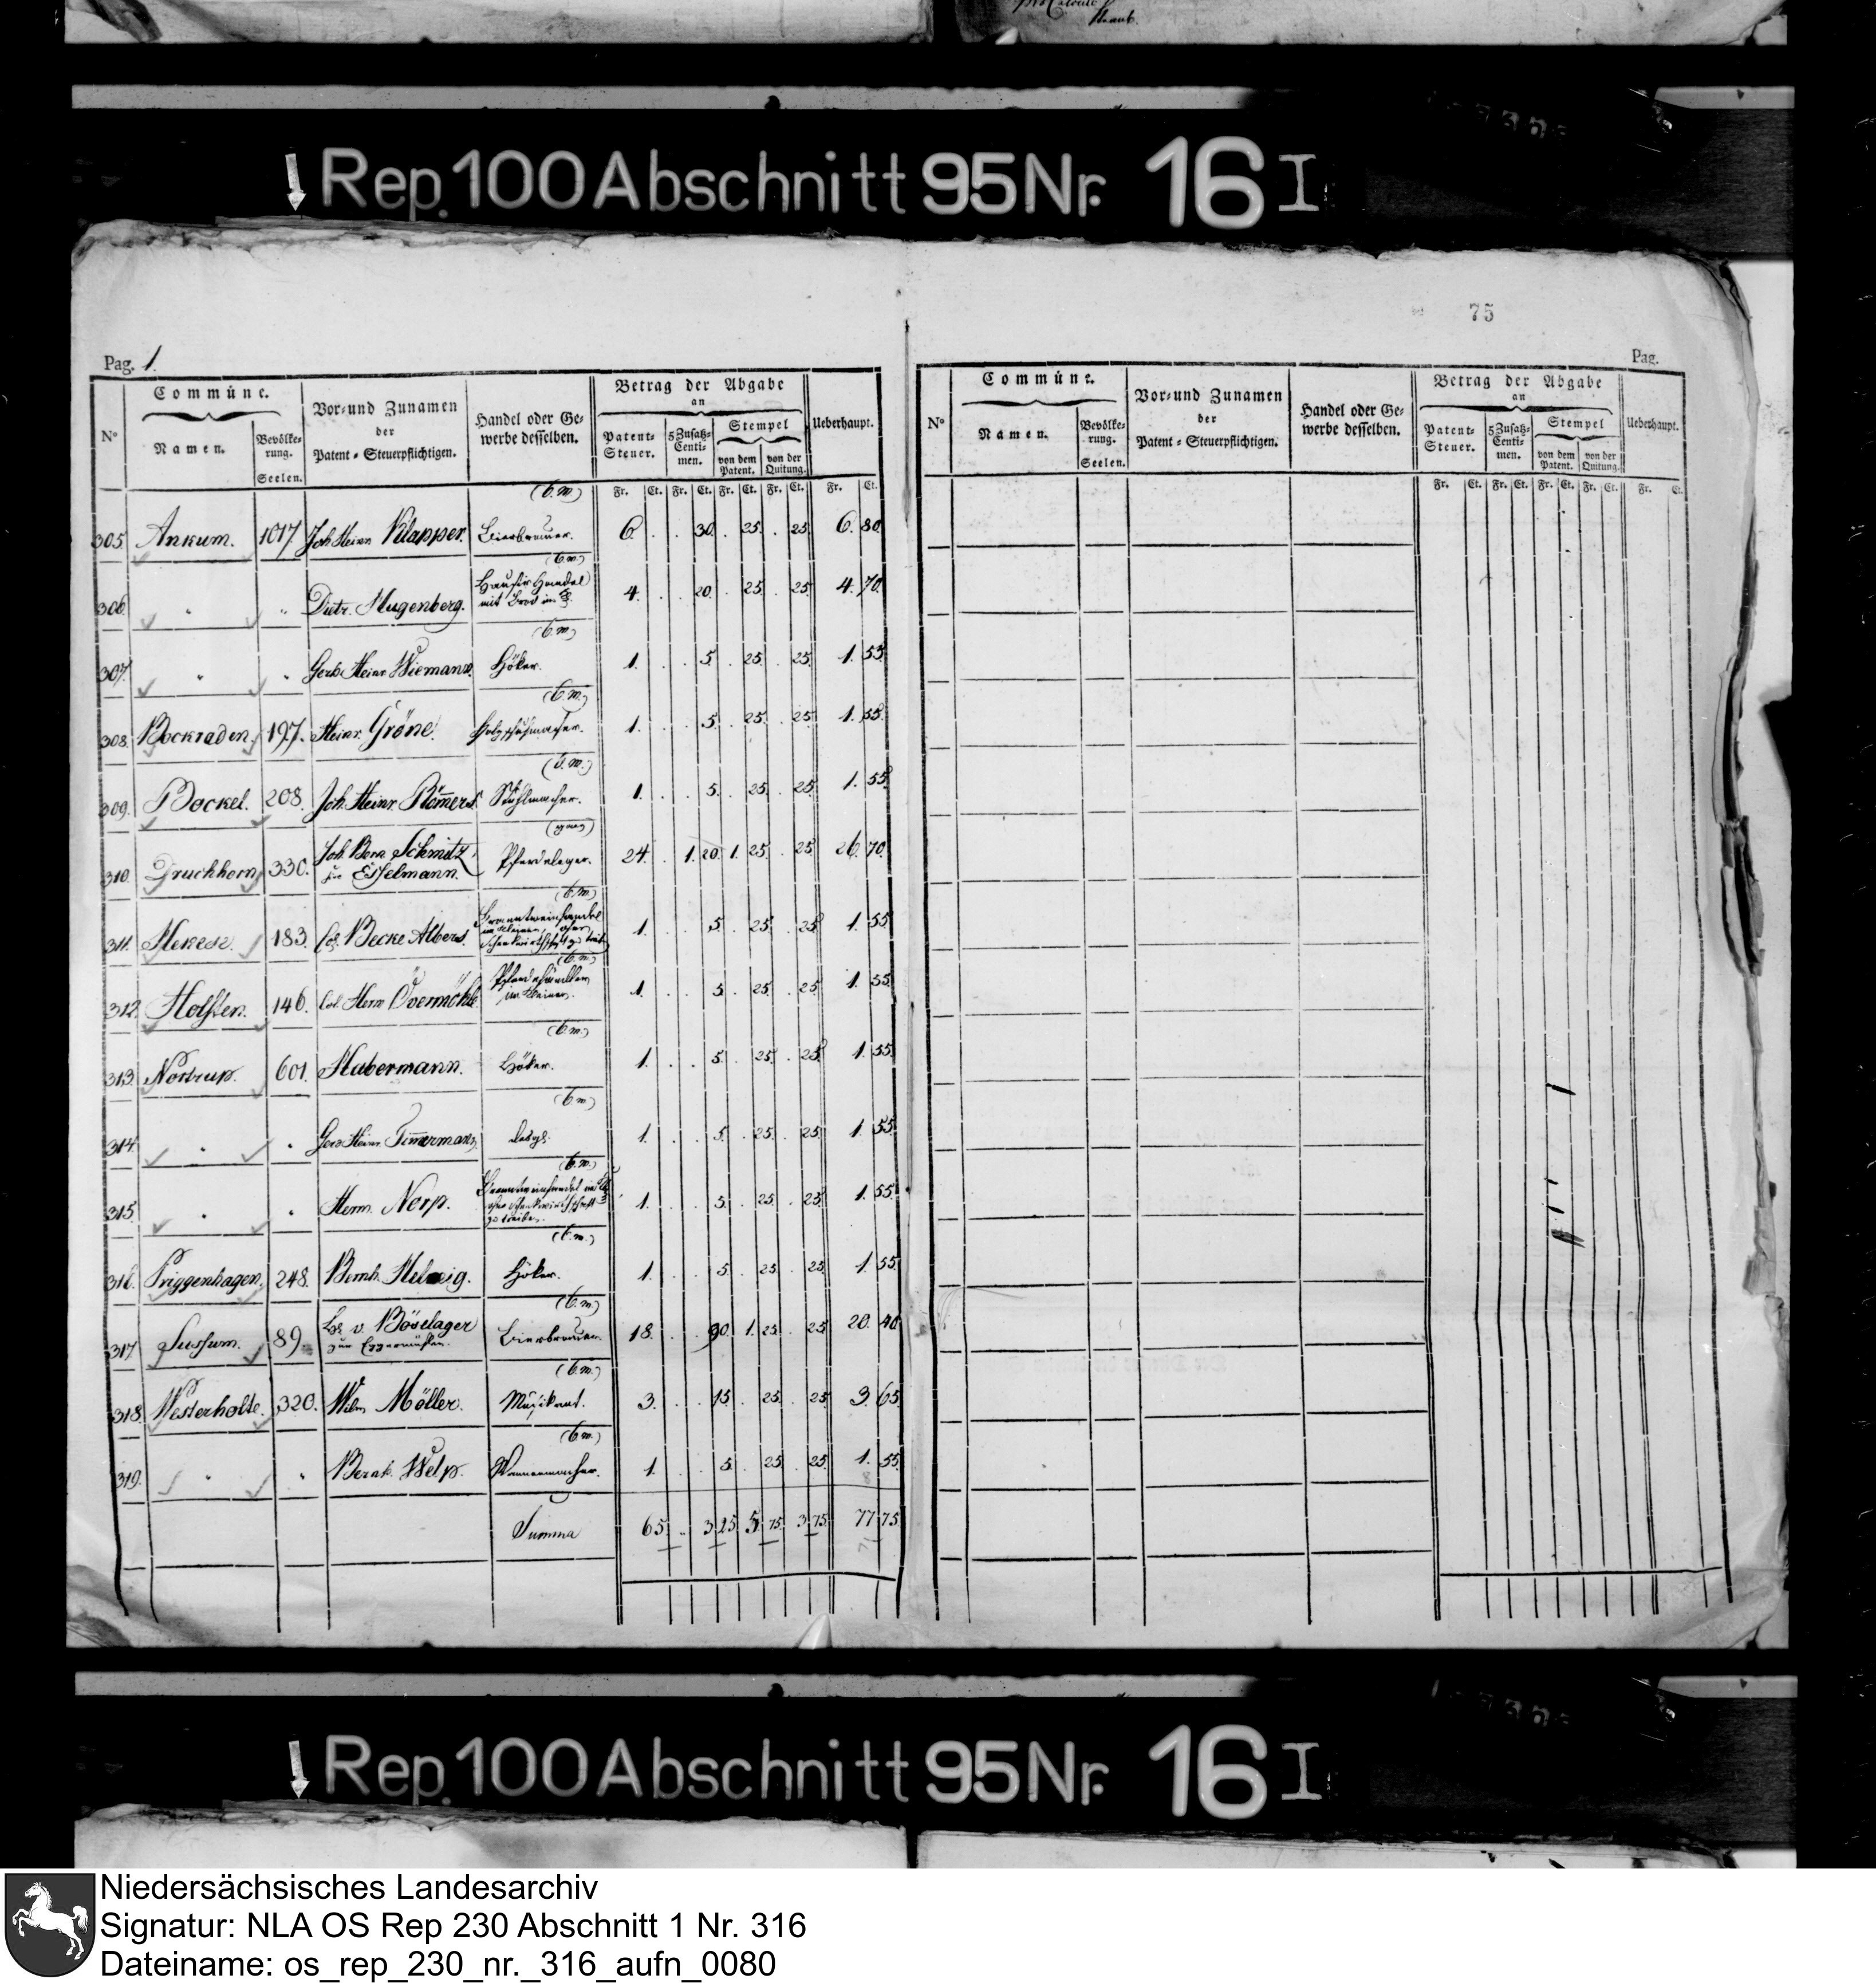 Rep. 100 Abschnitt 95 Nr. 16 I
75
Pag. 1.
Pag.
N° Commüne. Vor- und Zunamen der Patent-Steuerpflichtigen. Handel oder Gewerbe desselben. Betrag der Abgabe an Ueberhaupt.
Namen. Bevölkerung. Seelen. Patent-Steuer. 5 Zusatz-Centimen. Stempel von dem Patent. von der Quitung.
Fr. Ct. Fr. Ct. Fr. Ct. Fr. Ct. Fr. Ct.
N° Commüne. Vor- und Zunamen der Patent-Steuerpflichtigen. Handel oder Gewerbe desselben. Betrag der Abgabe an Ueberhaupt.
Namen. Bevölkerung. Seelen. Patent-Steuer. 5 Zusatz-Centimen. Stempel von dem Patent. von der Quitung.
Fr. Ct. Fr. Ct. Fr. Ct. Fr. Ct. Fr. Ct.
(b.m.)
305. Ankum. 1017 Joh Heinr. Klapper. Bierbrauer. 6. . . 30. . 25. . 25. 6. 80.
(b.m.)
306. " " Dietr. Hugenberg. Hausir Handel
mit Brod 4. . . 20. . 25. . 25. 4. 70.
(b.m.)
307. " " Gerh Heinr Wiemann. Höker. 1. . . 5. . 25. . 25. 1. 55.
(b.m.)
308. Bockraden. 197. Heinr. Gröne. Holzschuhmacher. 1. . . 5. . 25. . 25. 1. 55.
(b.m.)
309. Bockel. 208. Joh. Heinr. Stuhlmacher. 1. . . 5. . 25. . 25. 1. 55.
(ganz)
310. Druchhorn 330. Joh. Bern Schmitz
Eisselmann. Pferdeleger. 24. . 1. 20. 1. 25. . 25. 26. 70.
(b.m.)
311. Hekese. 183. Col. Becke Albers. Branntweinhandel
im Kleinen, ohne
Schenkwirthschaft zu treiben 1. . . 5. . 25. . 25. 1. 55.
(b.m.)
312. Holsten. 146. Col Herm Overmöhle Pferdehändler
im Kleinen. 1. . . 5. . 25. . 25. 1. 55.
(b.m.)
313. Nortrup. 601. Habermann. Höker. 1. . . 5. . 25. . 25. 1. 55.
(b.m.)
314. " " Gerd Heinr. Timmermann. desgl. 1. . . 5. . 25. . 25. 1. 55.
(b.m.)
315. " " Herm. Norp. Branntweinhandel
ohne Schenkwirthschaft
zu treiben. 1. . . 5. . 25. . 25. 1. 55.
(b.m.)
316. Priggenhagen. 248. Bernh. Helwig. Höker. 1. . . 5. . 25. . 25. 1. 55.
(b.m.)
317. Sussum. 89. v. Böselager
zur Eggermühlen. Bierbrauer. 18. . . 90. 1. 25. . 25. 20. 40.
(b.m.)
318. Westerholte. 320. Wilm Möller. Musikant. 3. . . 15. . 25. . 25. 3. 65.
(b.m.)
319. " " Bernh. Welp. Wannenmacher. 1. . . 5. . 25. . 25. 1. 55.
Summa 65. .. 3 25. 5 75. 3 75. 77 75
Rep. 100 Abschnitt 95 Nr. 16 I
Niedersächsisches Landesarchiv
Signatur: NLA OS Rep 230 Abschnitt 1 Nr. 316
Dateiname: os_rep_230_nr._316_aufn_0080